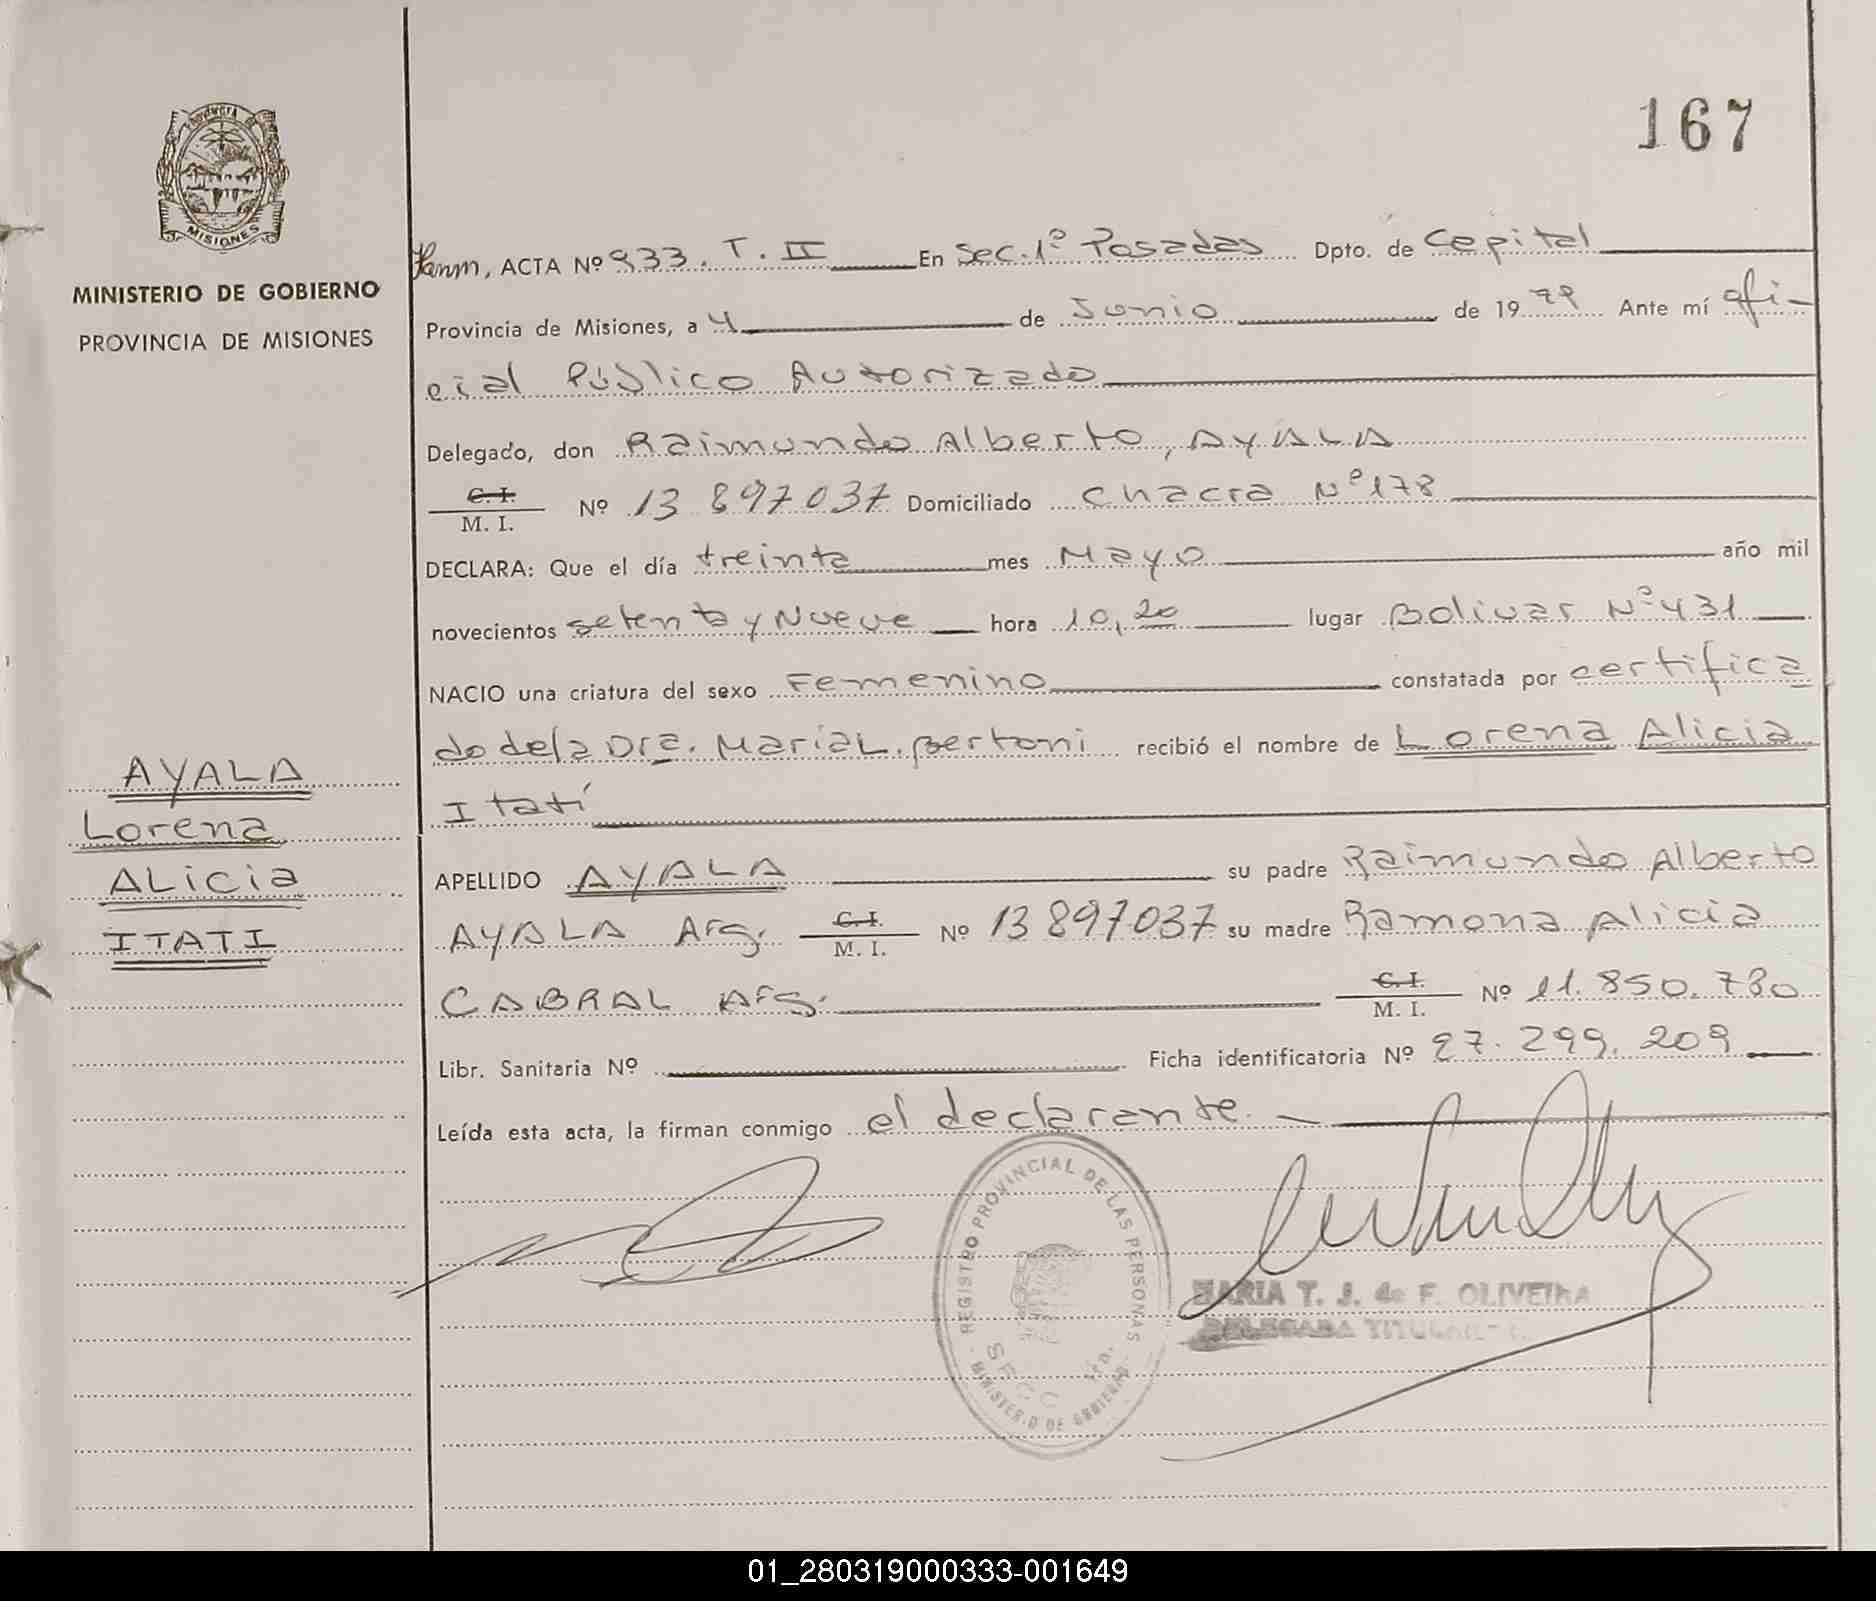 167
PROVINCIA DE
MISIONES
MINISTERIO DE GOBIERNO
PROVINCIA DE MISIONES
AYALA
Lorena
ALicia
ITATI
ACTA Nº 933. T. II En Sec. 1º Posadas Dpto. de Capital
Provincia de Misiones, a 4 de Junio de 1979 Ante mí ofi-
cial Público Autorizado
Delegado, don Raimundo Alberto, AYALA
C. I.
M. I. Nº 13 897037 Domiciliado chacra Nº 178
DECLARA: Que el día treinta mes Mayo año mil
novecientos setenta y Nueve hora 10,20 lugar Bolivar Nº 431
NACIO una criatura del sexo Femenino constatada por certifica
do de la Dra. Maria L. Bertoni recibió el nombre de Lorena Alicia
Itatí
APELLIDO AYALA su padre Raimundo Alberto
AYALA Arg. C. I. M. I. Nº 13 897037 su madre Ramona Alicia
CABRAL Arg. C. I. M. I. Nº 11.850.730
Libr. Sanitaria Nº Ficha identificatoria Nº 27.299.209
Leída esta acta, la firman conmigo el declarante.
REGISTRO PROVINCIAL DE LAS PERSONAS
SECC 1ra.
MINISTERIO DE GOBIERNO
MARIA T. J. de F. OLIVEIRA
DELEGADA TITULAR
01_280319000333-001649